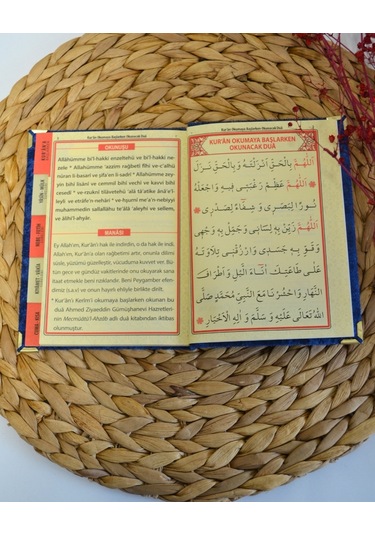 Kur'ân Okumaya Başlarken Okunacak Duâ
OKUNUŞU
Allâhümme bi'l-hakkı enzeltehû ve bi'l-hakkı ne-
zele * Allâhümme 'azzim rağbetî fîhi ve-c'alhü
nûran li-basarî ve şifâ'en li-sadrî * Allâhümme zey-
yin bihî lisânî ve cemmil bihî vechî ve kavvi bihî
cesedî * ve-rzuknî tilâvetehû 'alâ tâ'atike ânâ'e'l-
leyli ve etrâfe'n-nehâri * ve-hşurnî me'a'n-nebiyyi
muhammedin sallallâhu te'âlâ 'aleyhi ve sellem,
ve âlihi'l-ahyâr.
MANÂSI
Ey Allah'ım, Kur'ân'ı hak ile indirdin, o da hak ile indi.
Allah'ım, Kur'ân'a olan rağbetimi artır, onunla dilimi
süsle, yüzümü güzelleştir, vücuduma kuvvet ver. Bü-
tün gece ve gündüz vakitlerinde onu okuyarak sana
itaat etmekle beni rızıklandır. Beni Peygamber efen-
dimiz (s.a.v) ve onun hayırlı ehliyle birlikte dirilt.
* Kur'ân'ı Kerîm'i okumaya başlarken okunan bu
duâ Ahmed Ziyaeddin Gümüşhanevi Hazretleri-
nin Mecmûâtü'l-Ahzâb adlı duâ kitabından iktibas
olunmuştur.
Kur'ân Okumaya Başlarken Okunacak Duâ
KUR'ÂN OKUMAYA BAŞLARKEN
OKUNACAK DUÂ
اَللّٰهُمَّ بِالْحَقِّ اَنْزَلْتَهُ وَ بِالْحَقِّ نَزَلَ
اَللّٰهُمَّ عَظِّمْ رَغْبَتِى فِيهِ وَ اجْعَلْهُ
نُورًا لِبَصَرِى وَ شِفَاءً لِصَدْرِى
اَللّٰهُمَّ زَيِّنْ بِهِ لِسَانِى وَ جَمِّلْ بِهِ وَجْهِى
وَ قَوِّ بِهِ جَسَدِى وَارْزُقْنِى تِلَاوَتَهُ
عَلَى طَاعَتِكَ اٰنَاءَ الَّيْلِ وَ اَطْرَافَ
النَّهَارِ وَ احْشُرْنَا مَعَ النَّبِيِّ مُحَمَّدٍ صَلَّى
اللهُ تَعَالَى عَلَيْهِ وَ سَلَّمَ وَ اٰلِهِ الْاَخْيَارِ